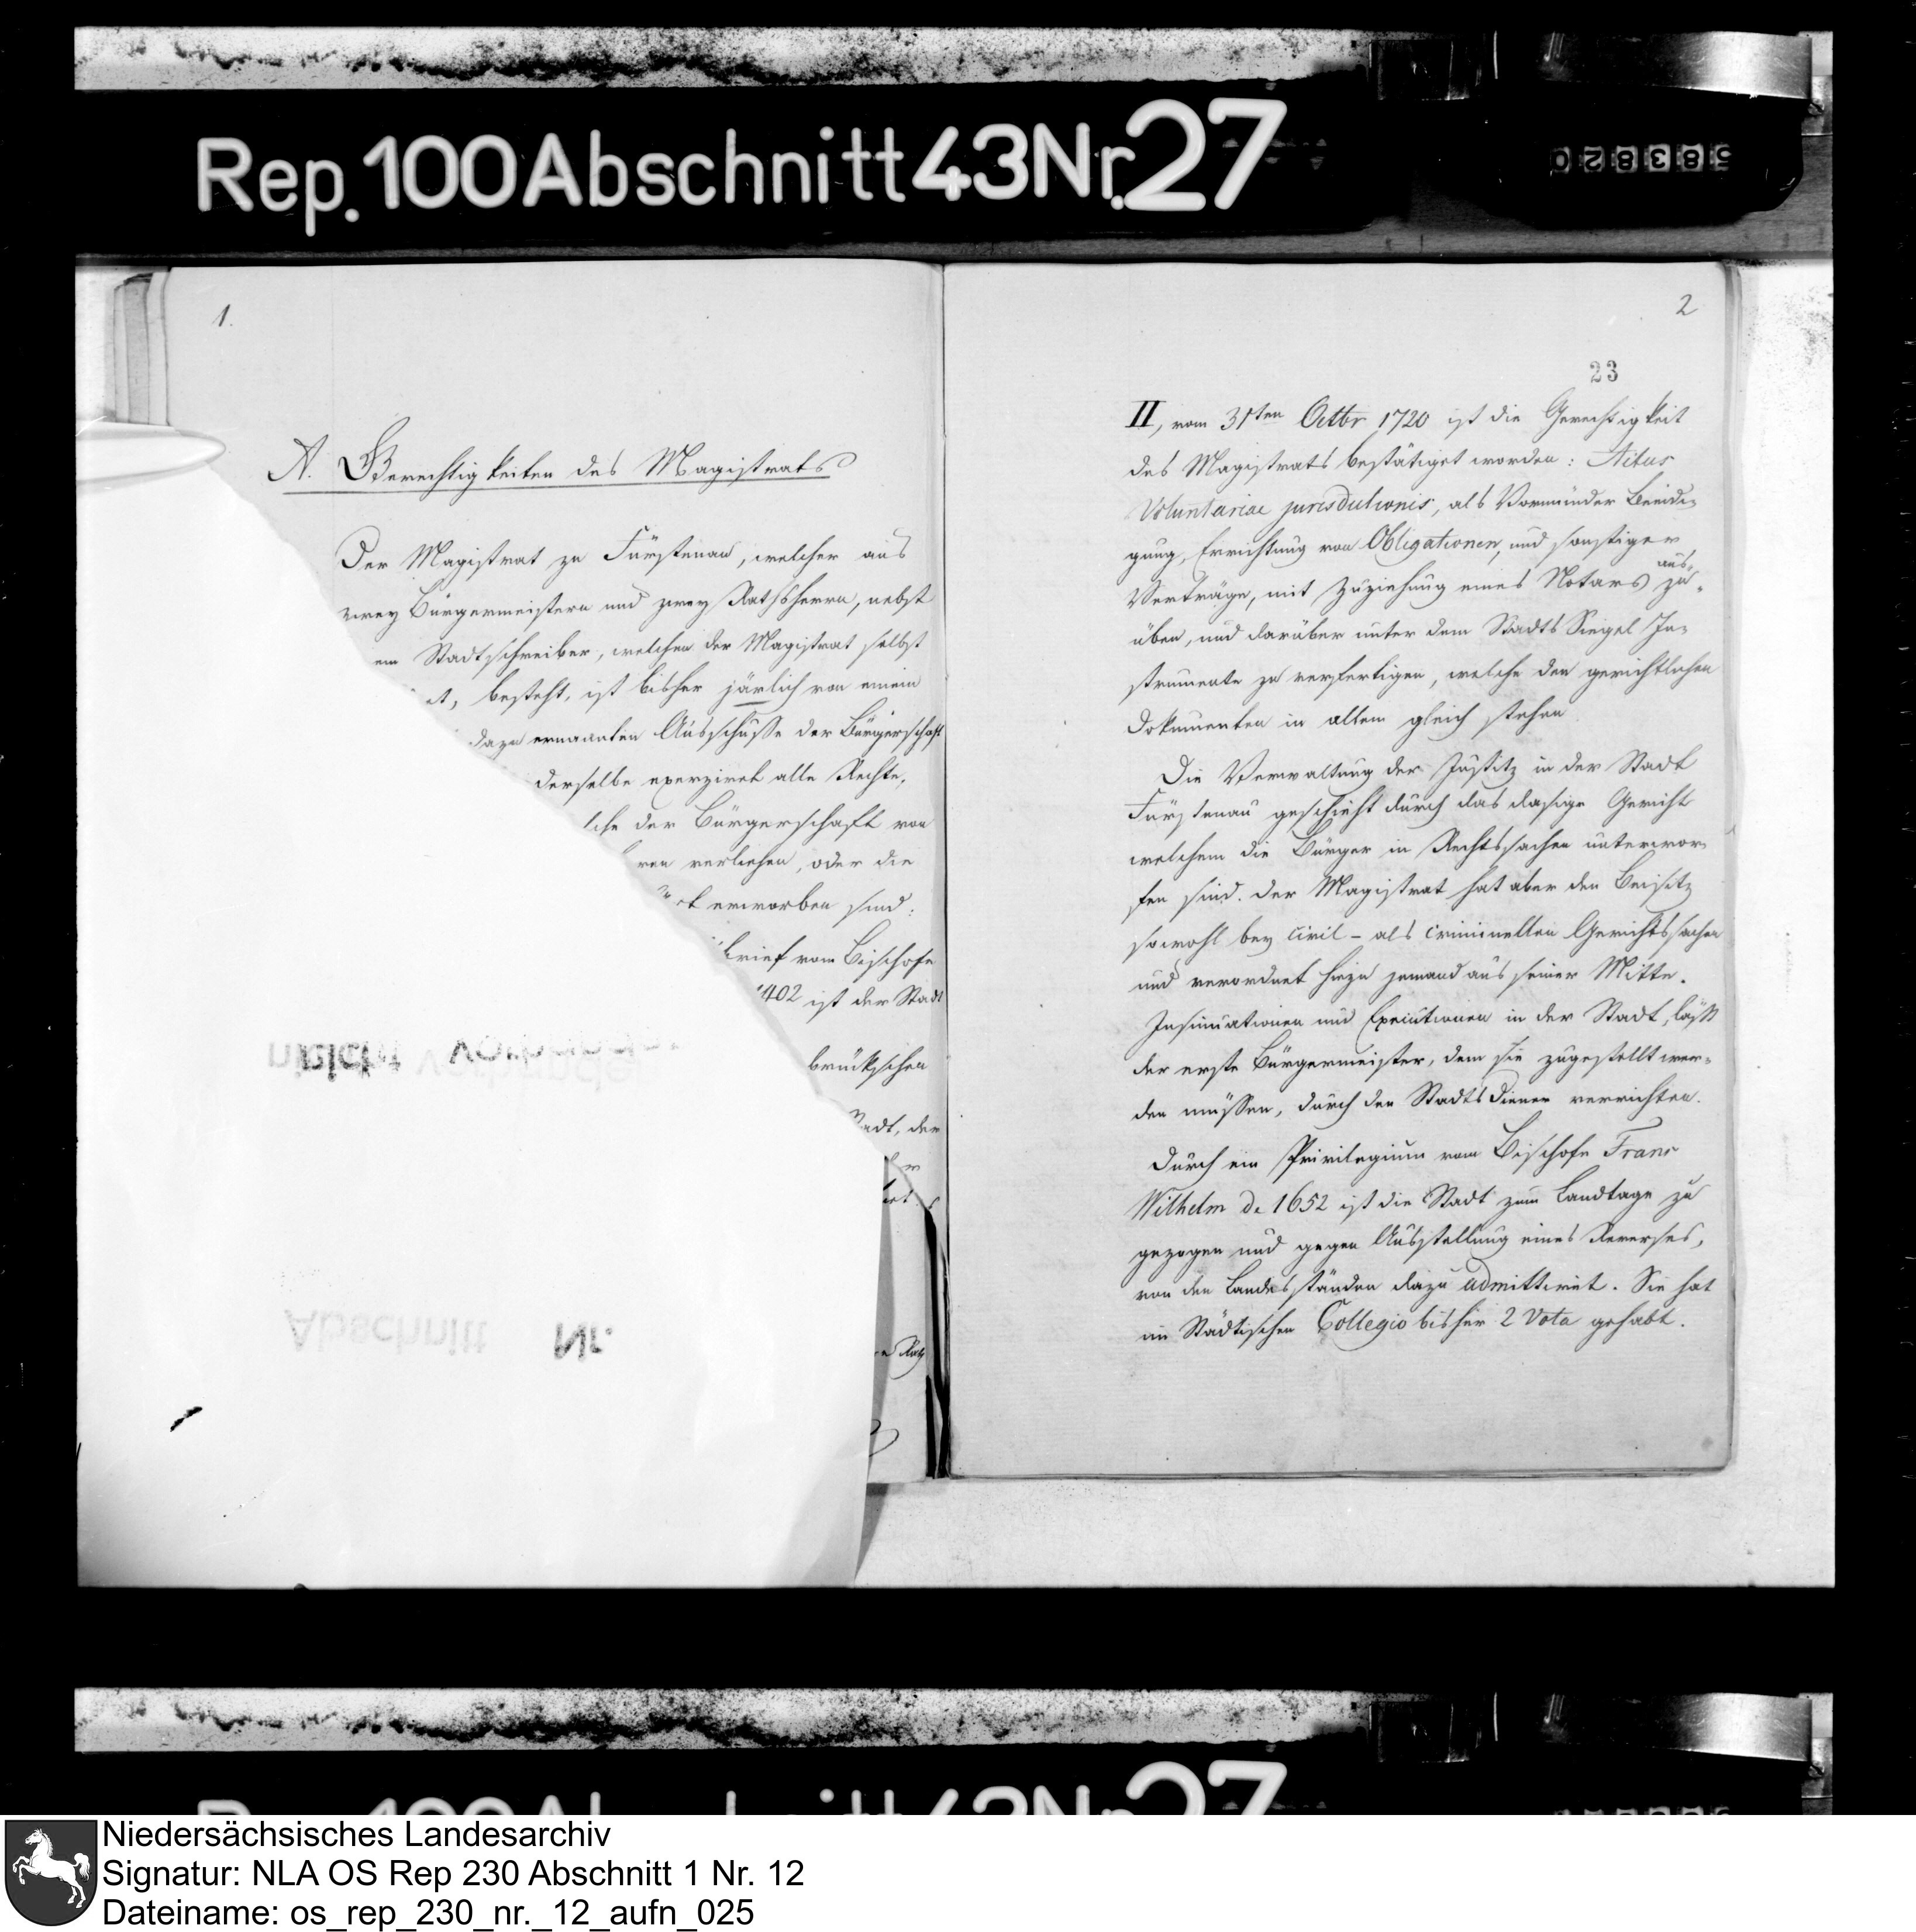 Rep. 100 Abschnitt 43 Nr. 27
028385
1.
A. Gerechtigkeiten des Magistrats
Der Magistrat zu Fürstenau, welcher aus
zwey Bürgermeistern und zwey Rathsherrn, nebst
Stadtschreiber, welchen der Magistrat selbst
besteht, ist bisher järlich von einem
dazu ernannten Ausschusse der Bürgerschaft
derselbe exerziret alle Rechte,
der Bürgerschaft von
verliehen, oder die
erworben sind:
brief vom Bischofe
1402 ist der Stadt
brückschen
Stadt, der
nicht vorhanden
Abschnitt Nr.
2
23
II, vom 31ten Octbr 1720 ist die Gerechtigkeit
des Magistrats bestätiget worden: Actus
Voluntariae jurisdictionis, als Vormünder Beeidi-
gung, Errichtung von Obligationen, und sonstiger
Verträge, mit Zuziehung eines Notars auszu-
üben, und darüber unter dem Stadts Siegel In-
strumente zu verfertigen, welche den gerichtlichen
Dokumenten in allem gleich stehen
Die Verwaltung der Justitz in der Stadt
Fürstenau geschieht durch das dasige Gericht
welchem die Bürger in Rechtssachen unterwor-
fen sind. Der Magistrat hat aber den Beisitz
sowohl bey civil- als criminellen Gerichtssachen
und verordnet hiezu jemand aus seiner Mitte.
Insinuationen und Executionen in der Stadt, läßt
der erste Bürgermeister, dem sie zugestellt wer-
den müssen, durch den Stadtsdiener verrichten.
Durch ein Privilegium vom Bischofe Franz
Wilhelm de 1652 ist die Stadt zum Landtage zu
gezogen und gegen Ausstellung eines Reverses,
von den Landesständen dazu admittiret. Sie hat
im Städtischen Collegio bisher 2 Vota gehabt.
Niedersächsisches Landesarchiv
Signatur: NLA OS Rep 230 Abschnitt 1 Nr. 12
Dateiname: os_rep_230_nr._12_aufn_025